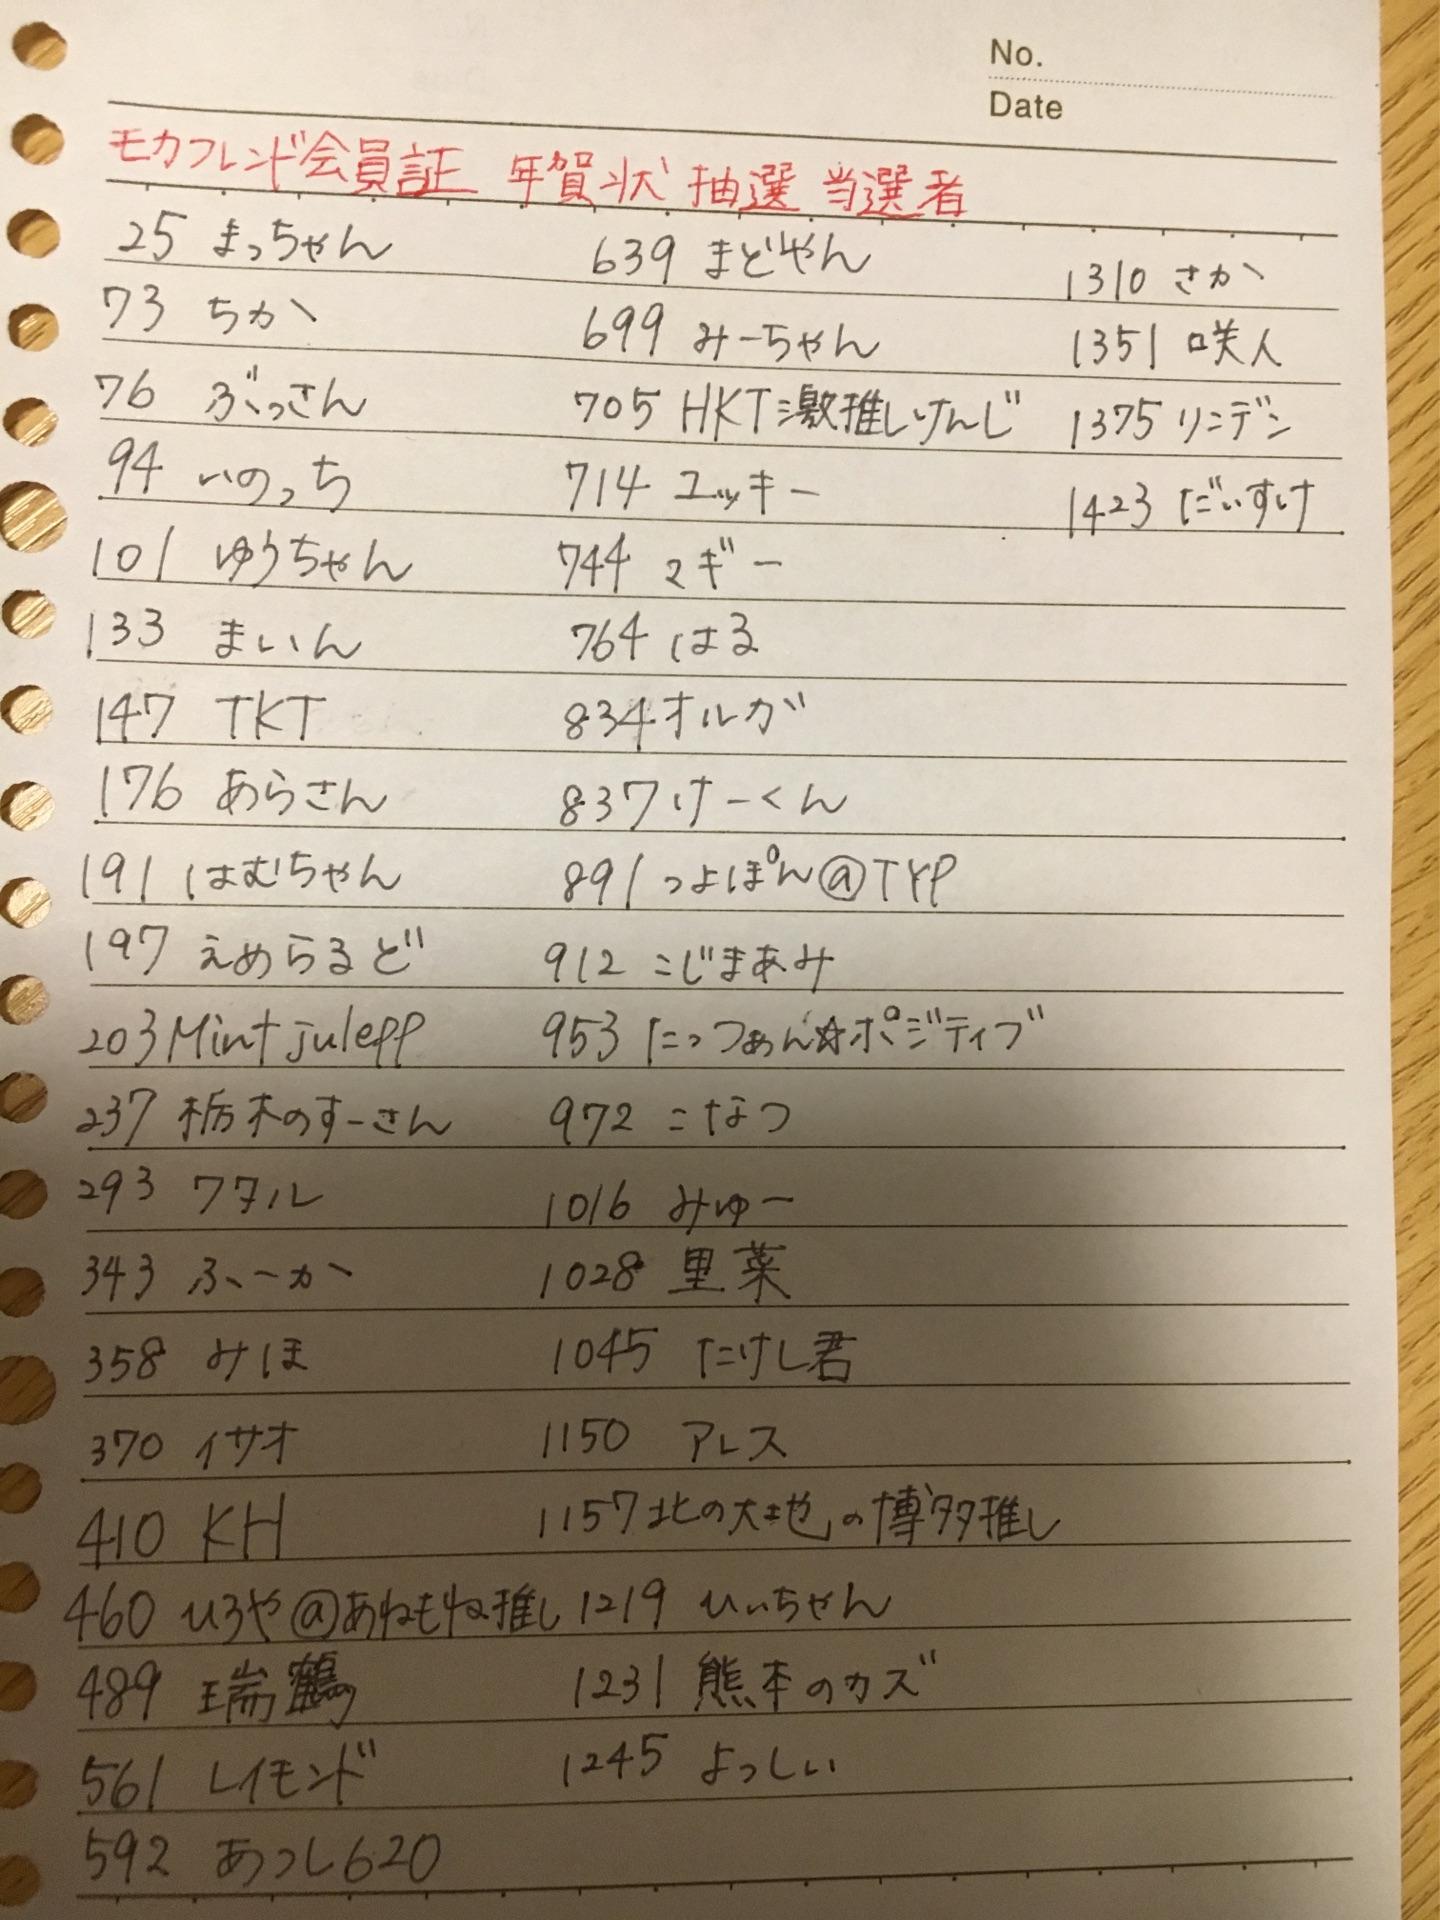 No.
Date
モカフレンド会員証 年賀状 抽選 当選者
25 まっちゃん
73 ちか
76 ぶっさん
94 いのっち
101 ゆうちゃん
133 まいん
147 TKT
176 あらさん
191 はむちゃん
197 えめらるど
203 Mint julepp
237 栃木のすーさん
293 ワタル
343 ふーか
358 みほ
370 イサオ
410 KH
460 ひろや@あねもね推し
489 瑞鶴
561 レイモンド
592 あつし620
639 まどやん
699 みーちゃん
705 HKT激推しけんじ
714 ユッキー
744 マギー
764 はる
834 オルガ
837 けーくん
891 つよぽん@TYP
912 こじまあみ
953 たっつぁん☆ポジティブ
972 こなつ
1016 みゅー
1028 里菜
1045 たけし君
1150 アレス
1157 北の大地の博多推し
1219 ひぃちゃん
1231 熊本のカズ
1245 よっしぃ
1310 さか
1351 咲人
1375 リニデン
1423 だいすけ